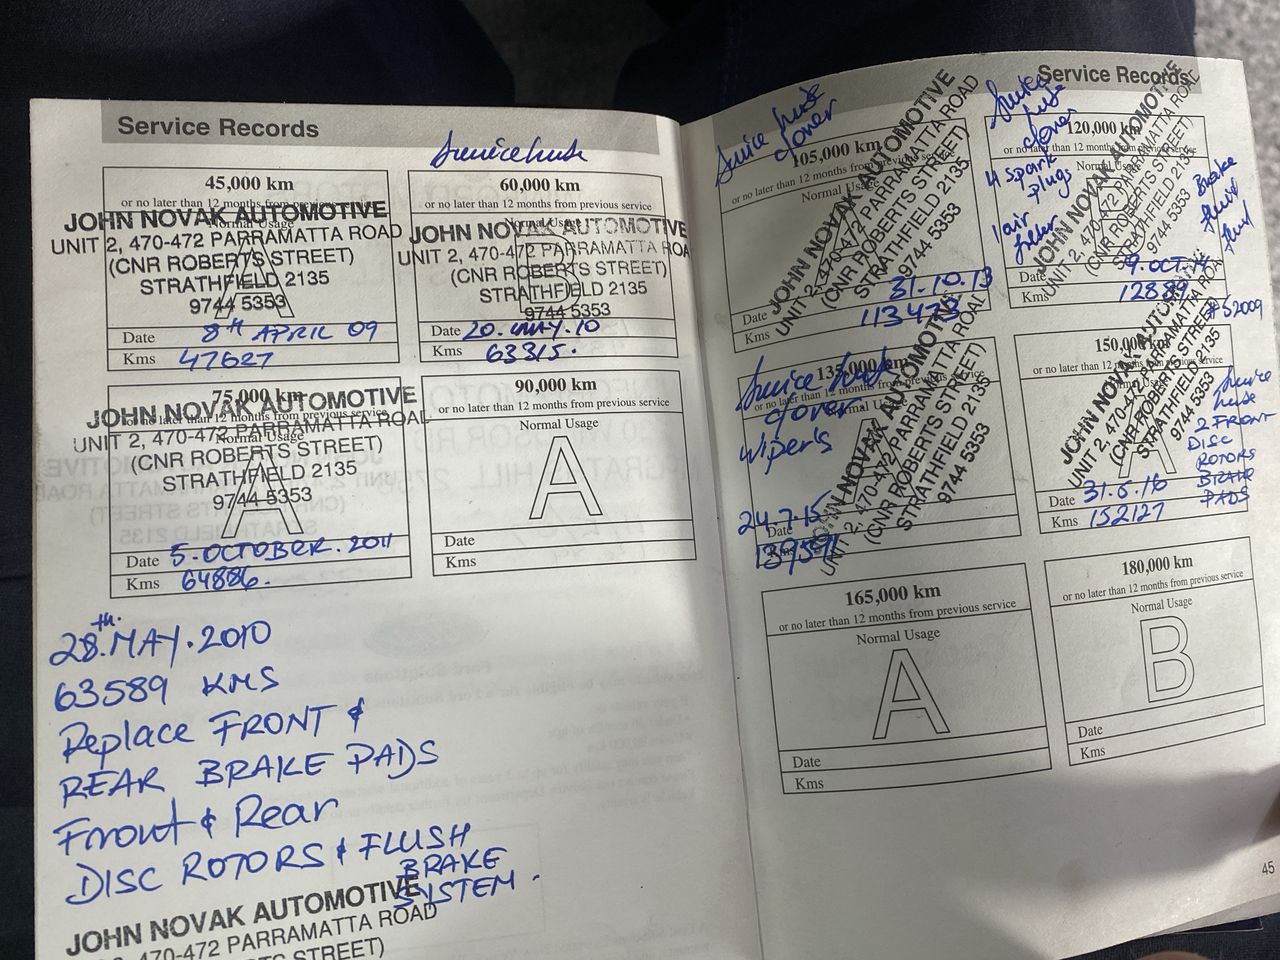 Service Records
45,000 km
or no later than 12 months from previous service
Normal Usage
JOHN NOVAK AUTOMOTIVE
UNIT 2, 470-472 PARRAMATTA ROAD
(CNR ROBERTS STREET)
STRATHFIELD 2135
9744 5353
A
Date 8th APRIL 09
Kms 47627
60,000 km
or no later than 12 months from previous service
Normal Usage
JOHN NOVAK AUTOMOTIVE
UNIT 2, 470-472 PARRAMATTA ROA
(CNR ROBERTS STREET)
STRATHFIELD 2135
9744 5353
Date 20. MAY. 10
Kms 63315.
75,000 km
or no later than 12 months from previous service
Normal Usage
JOHN NOVAK AUTOMOTIVE
UNIT 2, 470-472 PARRAMATTA ROAD
(CNR ROBERTS STREET)
STRATHFIELD 2135
9744 5353
A
Date 5. OCTOBER. 2011
Kms 64886.
90,000 km
or no later than 12 months from previous service
Normal Usage
A
Date
Kms
28th. MAY. 2010
63589 KMS
Replace FRONT &
REAR BRAKE PADS
Front & Rear
DISC ROTORS & FLUSH
BRAKE
SYSTEM.
JOHN NOVAK AUTOMOTIVE
470-472 PARRAMATTA ROAD
STREET)
Service Records
105,000 km
or no later than 12 months from previous service
Normal Usage
JOHN NOVAK AUTOMOTIVE
UNIT 2, 470-472 PARRAMATTA ROAD
(CNR ROBERTS STREET)
STRATHFIELD 2135
9744 5353
Date 31.10.13
113473
120,000 km
or no later than 12 months from previous service
Normal Usage
4 spark
plugs
1 air
filter
Brake
fluid
JOHN NOVAK AUTOMOTIVE
UNIT 2, 470-472 PARRAMATTA ROAD
(CNR ROBERTS STREET)
STRATHFIELD 2135
9744 5353
Date 9. OCT. 14
Kms
135,000 km
or no later than 12 months from previous service
Normal Usage
wiper's
JOHN NOVAK AUTOMOTIVE
UNIT 2, 470-472 PARRAMATTA ROAD
(CNR ROBERTS STREET)
STRATHFIELD 2135
9744 5353
24.7.15
Date
Kms 139591
150,000 km
JOHN NOVAK
UNIT 2, 470-472
(CNR ROBERTS STREET)
STRATHFIELD 2135
9744 5353
A
2 FRONT
DISC
ROTORS
BRAKE
PADS
Date 31.5.16
Kms 152127
165,000 km
or no later than 12 months from previous service
Normal Usage
A
Date
Kms
180,000 km
or no later than 12 months from previous service
Normal Usage
B
Date
Kms
45